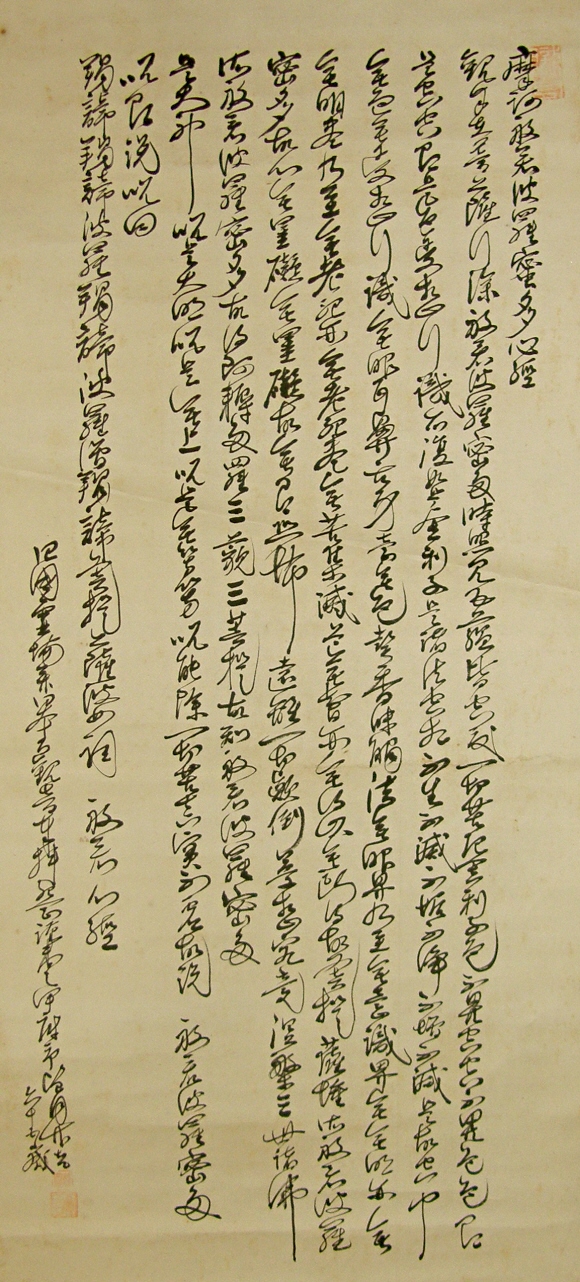 摩訶般若波羅蜜多心經
觀自在菩薩行深般若波羅密多時照見五蘊皆空度一切苦厄舍利子色不異空空不異色色即
是空空即是色受想行識亦復如是舍利子是諸法空相不生不滅不垢不淨不增不滅是故空中
無色無受想行識無眼耳鼻舌身意無色聲香味觸法無眼界乃至無意識界無無明亦無
無明盡乃至無老死亦無老死盡無苦集滅道無智亦無得以無所得故菩提薩埵依般若波羅
密多故心無罣礙無罣礙故無有恐怖遠離一切顛倒夢想究竟涅槃三世諸佛
依般若波羅密多故得阿耨多羅三藐三菩提故知般若波羅密多
是大神呪是大明呪是無上呪是無等等呪能除一切苦真実不虚故説般若波羅密多
呪即説呪曰
羯諦羯諦波羅羯諦波羅僧羯諦菩提薩婆訶 般若心經
四國霊場第